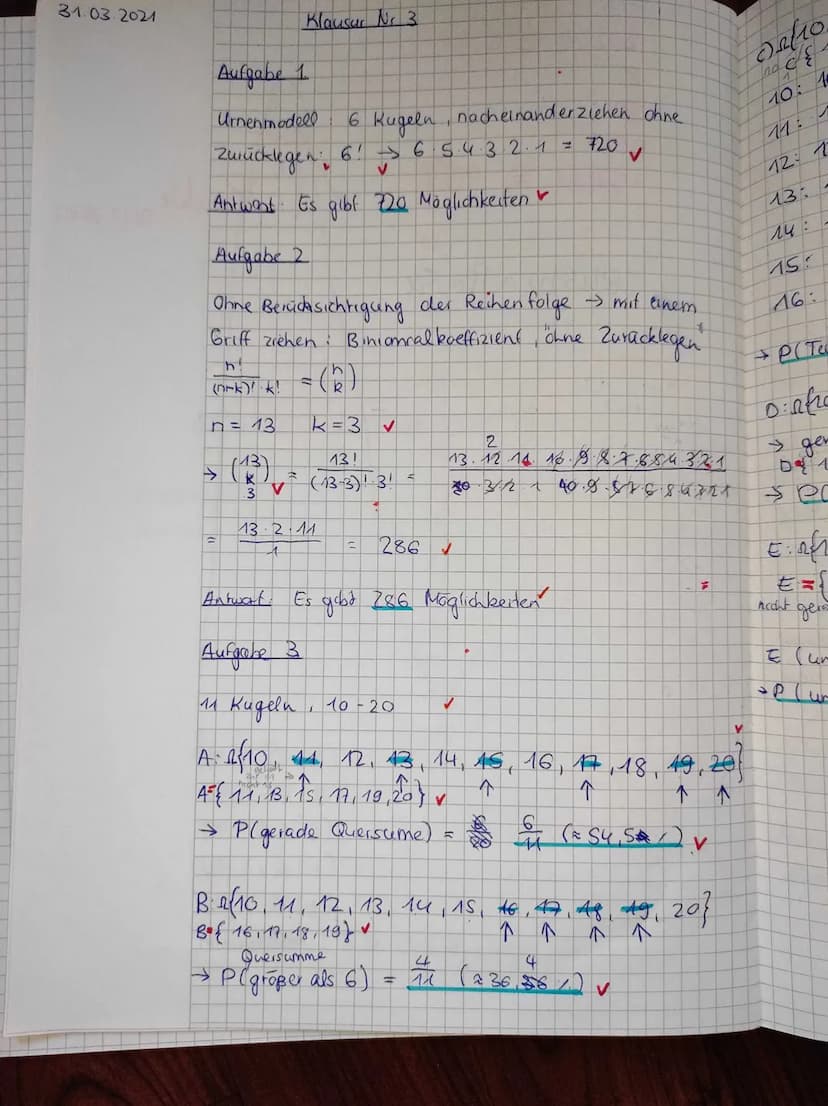 31.03.2021
Klausur Nr 3
Aufgabe 1
Urnenmodell: 6 Kugeln, nacheinanderziehen ohne
Zurücklegen: 6! → 6·5·4·3·2·1 = 720
Antwort: Es gibt 720 Möglichkeiten
Aufgabe 2
Ohne Berücksichtigung der Reihenfolge → mit einem
Griff ziehen: Biniomralkoeffizient, "ohne Zurücklegen"
n!/(n-k)!·k! = (n k)
n = 13 k = 3
→ (13 3) = 13!/(13-3)!·3! =
= 13·2·11/1 = 286
Antwort: Es gibt 286 Möglichkeiten
Aufgabe 3
11 Kugeln, 10-20
A: Ω{10, 11, 12, 13, 14, 15, 16, 17, 18, 19, 20}
A={11, 13, 15, 17, 19, 20}
→ P(gerade Quersume) = 6/11 (≈ 54,5%)
B: Ω{10, 11, 12, 13, 14, 15, 16, 17, 18, 19, 20}
B={16, 17, 18, 19}
Quersumme
→ P(größer als 6) = 4/11 (≈ 36,4%)
C) Ω{10
C{
10:
11:
12:
13:
14:
15:
16:
→ P(
D: Ω{
→ ger
D{1
→
E: Ω{1
E={
nicht gera
E (un
→ P(un